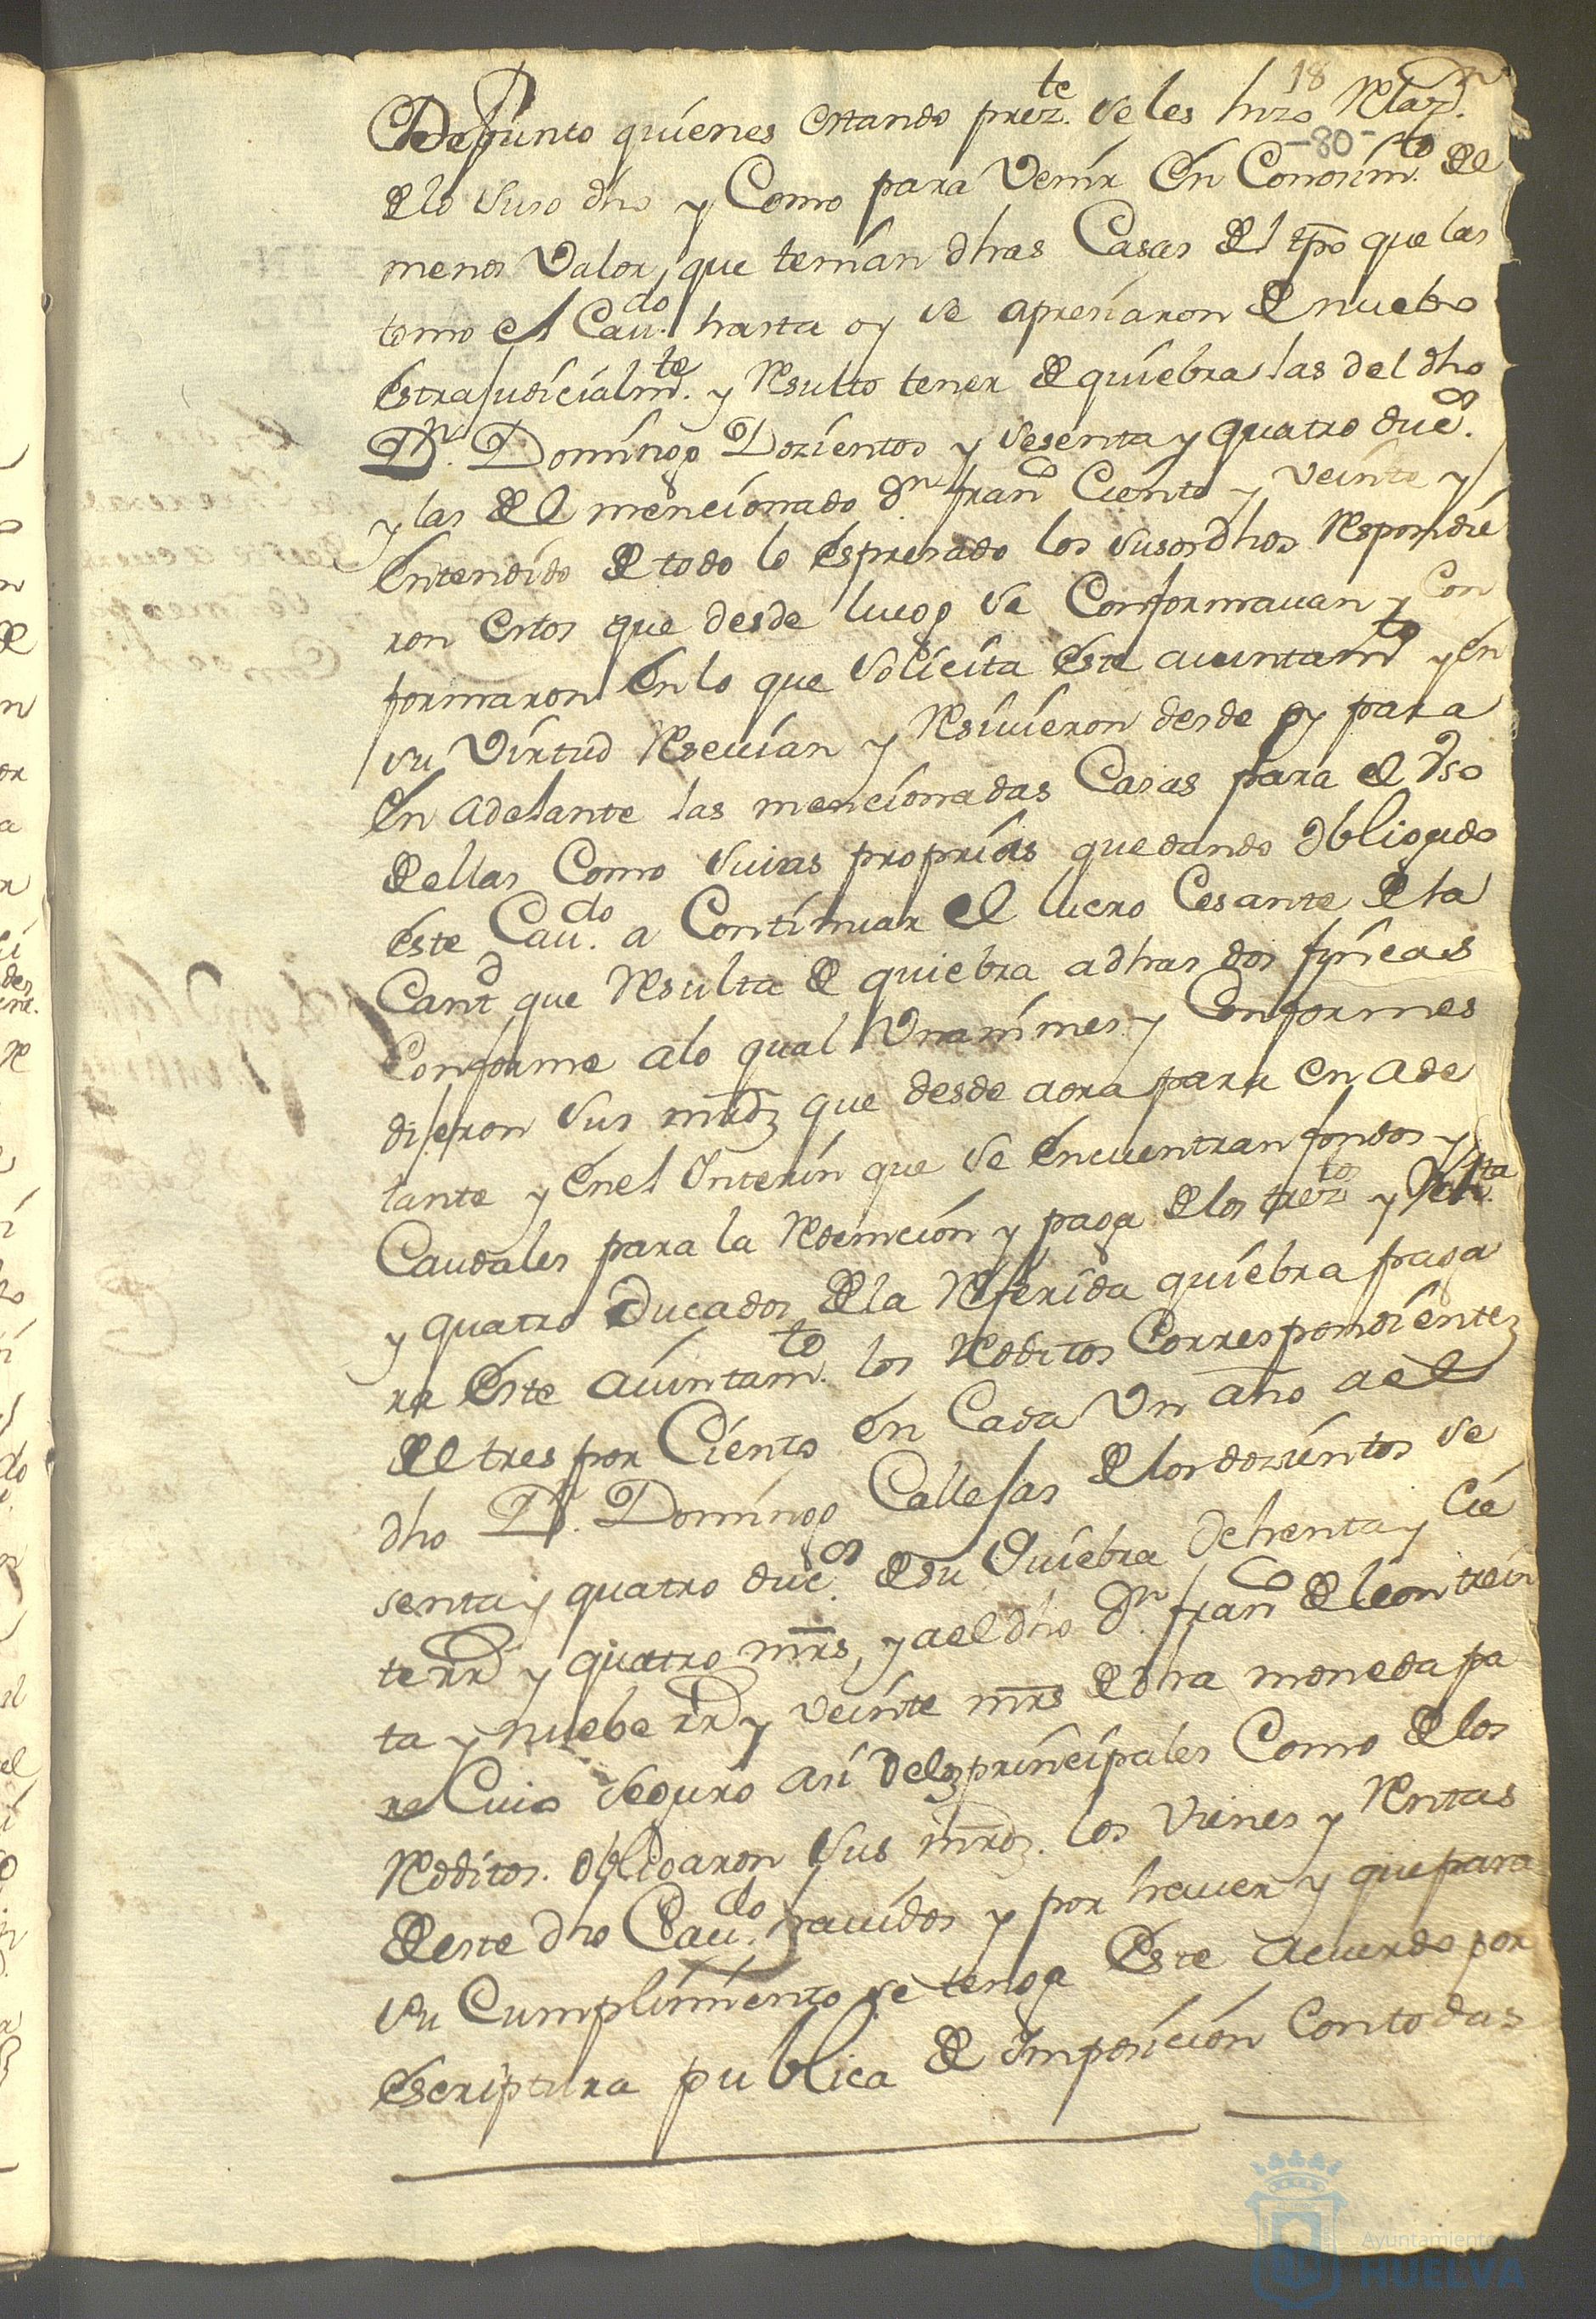 18
-80-
Defunto quienes estando prez.te se les hizo Relaz.n
de lo suso dho y Como para Venir en Conosim.to de el
menos Valor, que tenian dhas Casas del tpo que las
tomo el Cau.do hasta oy se apresiaron de nuebo
estrajudicialm.te y Resulto tener de quiebra las del dho
D.n Domingo Dozientos y sesenta y quatro duc.os
y las de el mencionado d.n fran.co Ciento y veinte y
entendido de todo lo espresado los susos dhos Respondie
ron estos que desde luego se Conformauan y Con
formaron en lo que solicita este auintam.to y en
su Virtud Reseuian y Resiuieron desde oy para
en adelante las mencionadas Casas para el Vso
de ellas Como suias proprias quedando obligado
este Cau.do a Continuar el lucro Cesante de la
Cant.d que Resulta de quiebra a dhas dos fincas
Conforme a lo qual Vnanimes y Conformes
dijeron sus mrdz que desde aora para en ade
lante y en el Interin que se encuentran fondos y
Caudales para la Redemcion y paga de los trez.tos y och.ta
y quatro Ducados de la Referida quiebra paga
ra este auintam.to los Redditos Correspondientez
de el tres por Ciento en Cada Vn año a el
dho D.n Domingo Callejas de los dozientos se
senta y quatro duc.os de su Quiebra Ochenta y cie
te rr.s y quatro mrs, y a el dho d.n fran.co de leon trein
ta y nuebe rr.s y veinte mrs de dha moneda pa
ra Cuio seguro asi de los principales Como de los
Redditos. obligaron sus mrdz. los vienes y Rentas
de este dho Cau.do hauidos y por hauer y que para
su Cumplimiento se tenga este acuerdo por
escriptura publica de Imposicion Con todas
Ayuntamiento de
HUELVA